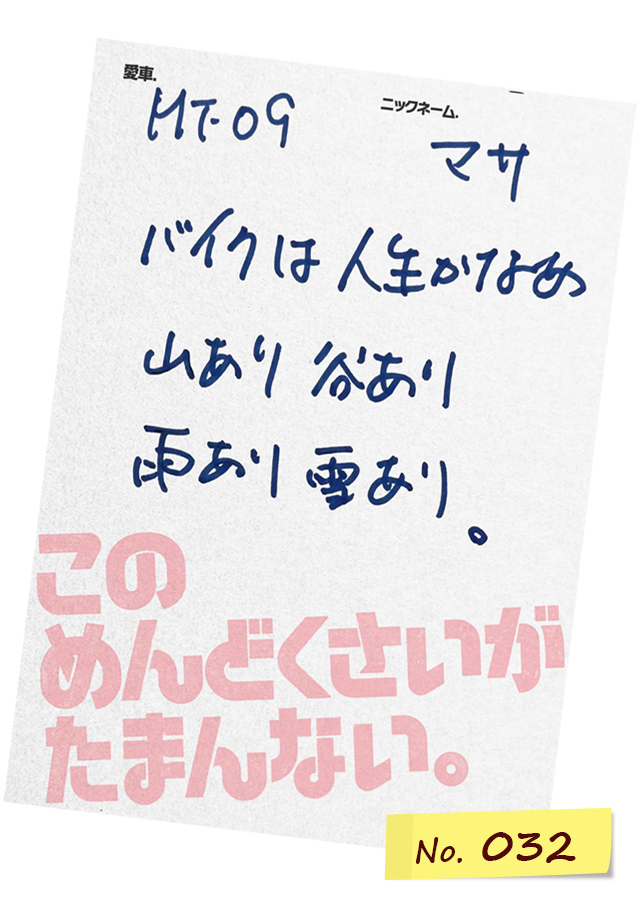 愛車.
ニックネーム.
MT-09
マサ
バイクは人生かなあ
山あり谷あり
雨あり雪あり。
この
めんどくさいが
たまんない。
No. 032